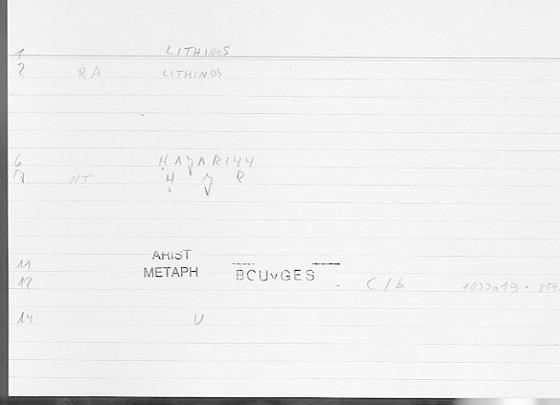 1 LITHINOS
2 RA LITHINOS
6 HAJARIYY
7 NT H J R
11 ARIST
12 METAPH BOUYGES C/b 1033a19
14 U